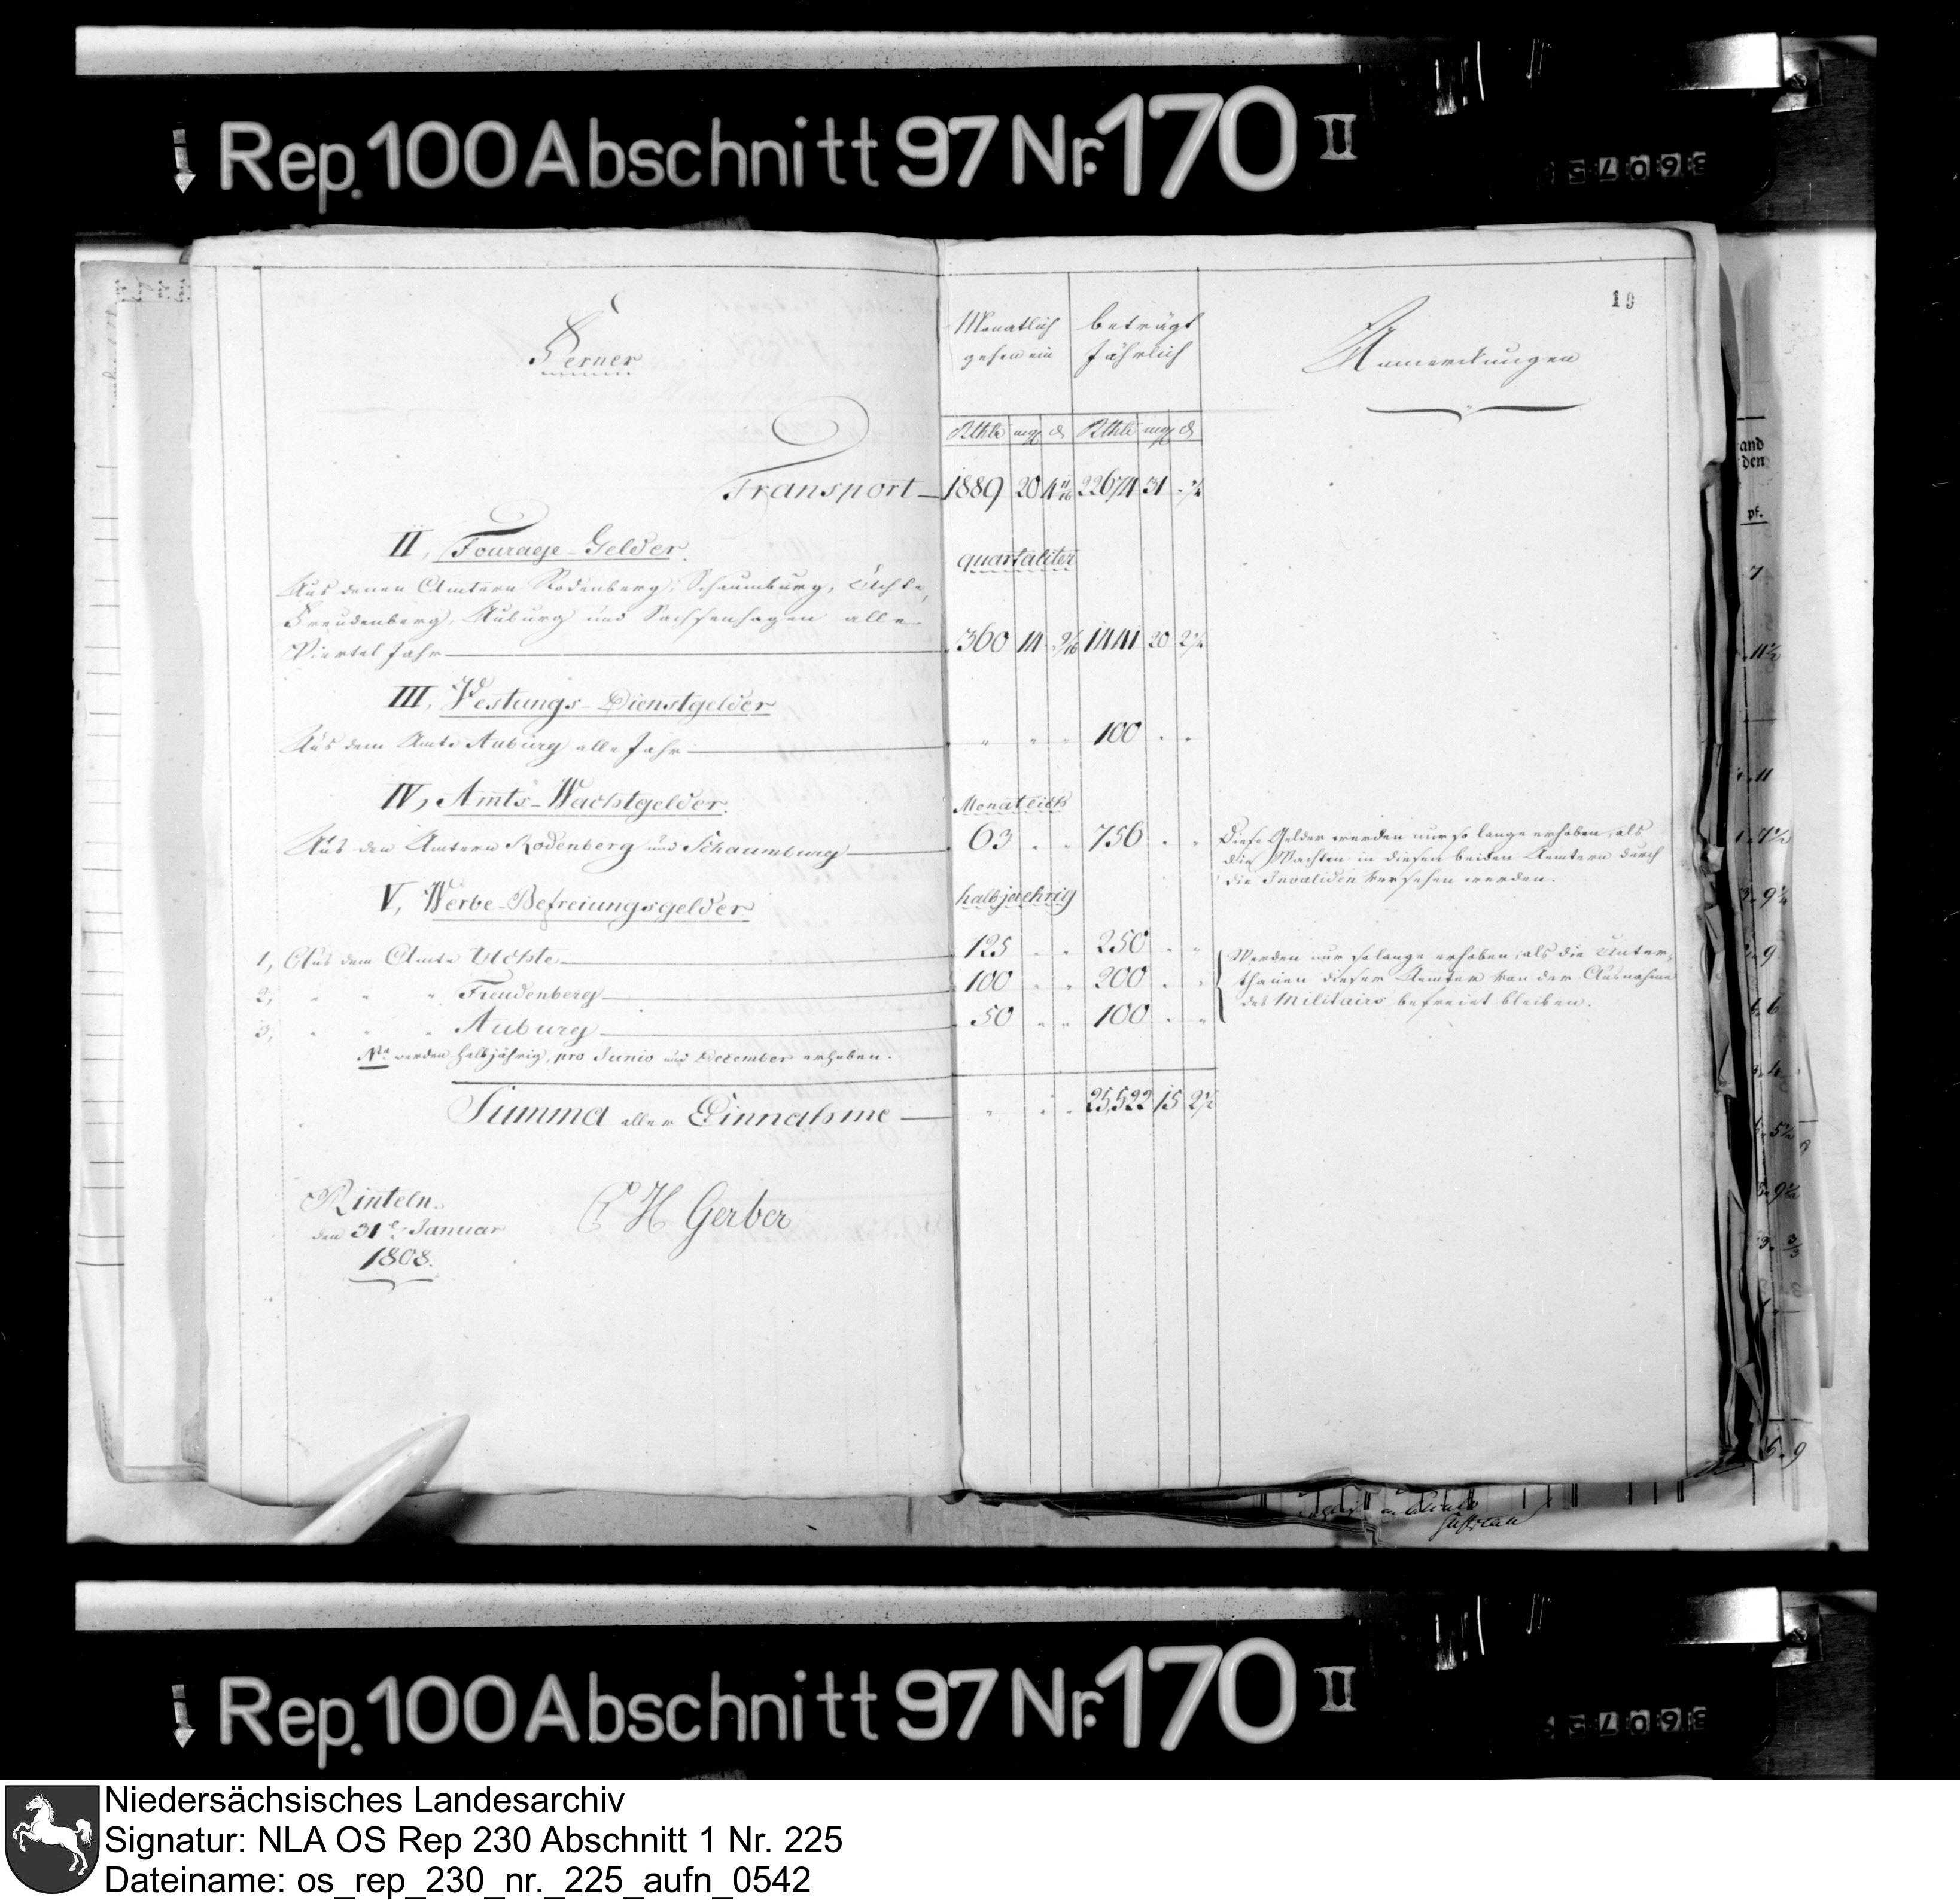 Rep. 100 Abschnitt 97 Nr. 170 II
36075
10
Ferner
Monatlich gehen ein
beträgt Jährlich
Anmerckungen
Rthlr mgr d Rthlr mgr d
Transport 1889 20 4 11/16 22674 31 - 1/4
II, Fourage-Gelder.
quartaliter
Aus denen Amtern Rodenberg, Schaumburg, Uchte,
Freudenberg, Auburg und Sachsenhagen alle
Viertel Jahr 360 14 - 9/16 1441 20 2 1/4
III, Vestungs-Dienstgelder
Aus dem Amte Auburg alle Jahr " " " 100 . .
IV, Amts-Wachtgelder.
Monatlich
Aus den Amtern Rodenberg und Schaumburg 63 . . 756 . .
Diese Gelder werden nur so lange erhoben, als
die Wachten in diesen beiden Aemtern durch
die Invaliden versehen werden.
V, Werbe-Befreiungsgelder
halbjaehrig
1, Aus dem Amte Uchte 125 . . 250 . .
2, " " " Freudenberg 100 . . 200 . .
3, " " " Auburg 50 . . 100 . .
Werden nur solange erhoben, als die Unter-
thanen dieser Aemter von der Ausnahme
des Militairs befreiet bleiben.
Na werden halbjährig, pro Junio und December erhoben.
Summa aller Einnahme " " " 25,522 15 2 1/2
Rinteln.
den 31t Januar
1808.
C H Gerber
and
den
pf.
7
11 1/2
11
7 1/2
9 1/4
9
6
4
5 1/2
9 1/2
5. 9
Rep. 100 Abschnitt 97 Nr. 170 II
36075
Niedersächsisches Landesarchiv
Signatur: NLA OS Rep 230 Abschnitt 1 Nr. 225
Dateiname: os_rep_230_nr._225_aufn_0542